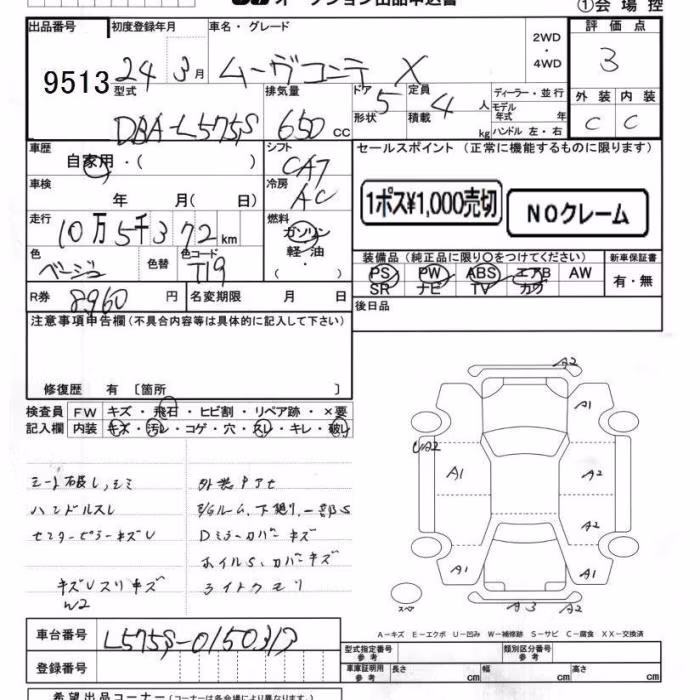 オークション出品申込書
①会場控
出品番号 初度登録年月 車名・グレード 2WD ・ 4WD 評価点
9513 24 3月 ムーヴコンテ X 3
型式 排気量 ドア 5 定員 4人 ディーラー・並行 外装 内装
DBA-L575S 650cc 形状 積載 kg モデル年式 年 C C
ハンドル 左・右
車歴 シフト セールスポイント(正常に機能するものに限ります)
自家用・( ) CA7
車検 冷房 1ポス¥1,000売切 NOクレーム
年 月( 日) AC
走行 燃料
10万5千372km ガソリン
色 色替 色コード 軽・油 装備品(純正品に限り○をつけてください) 新車保証書
ベージュ T19 (・) PS PW ABS エアB AW 有・無
SR ナビ TV カワ
R券 8960円 名変期限 月 日 後日品
注意事項申告欄(不具合内容等は具体的に記入して下さい)
修復歴 有 〔箇所 〕
検査員 FW キズ・飛石・ヒビ割・リペア跡・×要
記入欄 内装 キズ・汚レ・コゲ・穴・スレ・キレ・破レ
シート破レ,シミ
ハンドルスレ
センターピラーキズU
キズUスリキズ
W2
外装Pアセ
E/Gルーム、下廻り、一部S
Dミラーカバーキズ
ホイルS、カバーキズ
ライトクモリ
A2
A1
UA2
A1 A2
A2
A1 A1
スペア A3 A2
A-キズ E-エクボ U-凹み W-補修跡 S-サビ C-腐食 XX-交換済
車台番号 L575S-0150319
登録番号
型式指定番号 参考 類別区分番号 参考
車庫証明用 参考 長さ cm 幅 cm 高さ cm
希望出品コーナー(コーナーは各会場により異なります。)